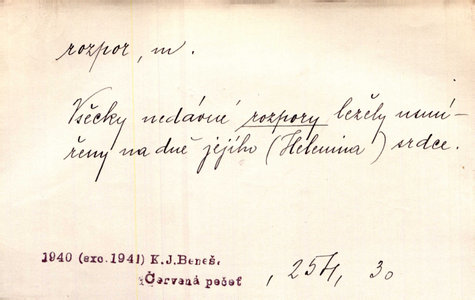 rozpor, m.
Všecky nedávné rozpory ležely usmí-
řeny na dně jejího (Helenina) srdce.
1940 (exc. 1941) K.J.Beneš,
Červená pečeť , 254, 30